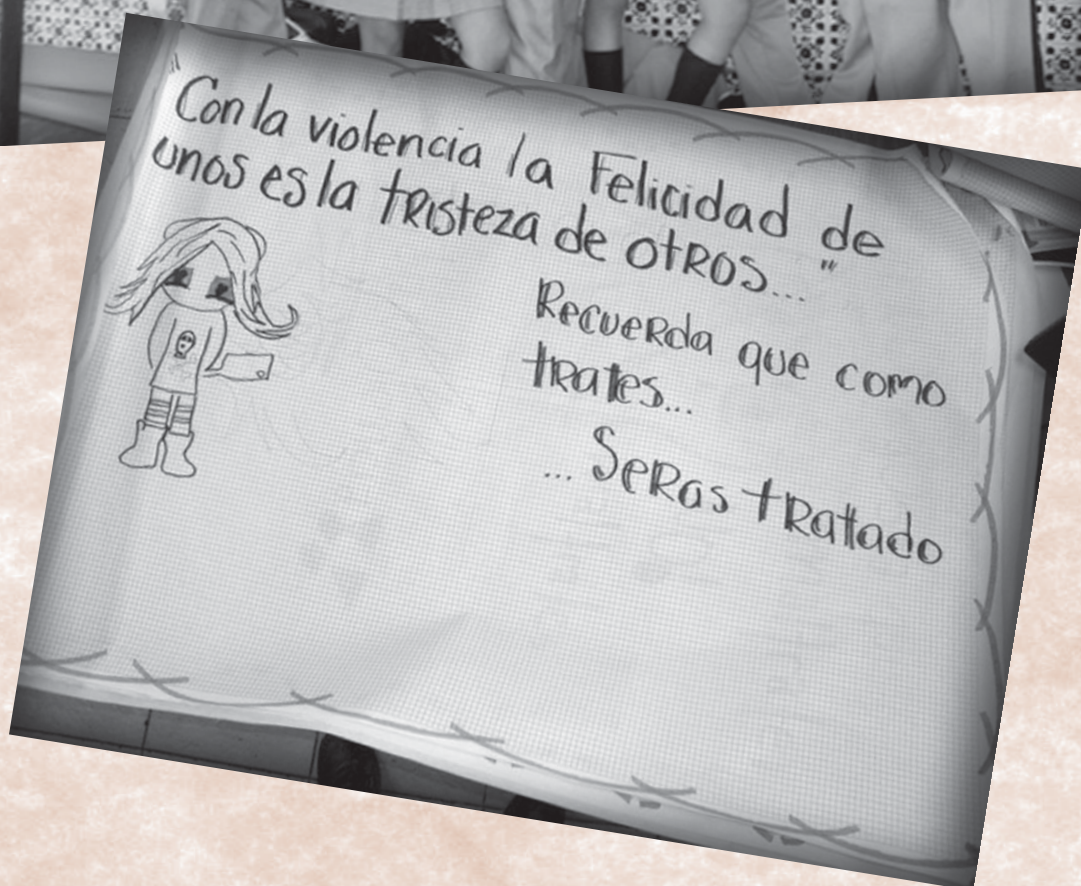 "Con la violencia la Felicidad de
unos es la tristeza de otros..."
Recuerda que como
trates...
... Seras tratado